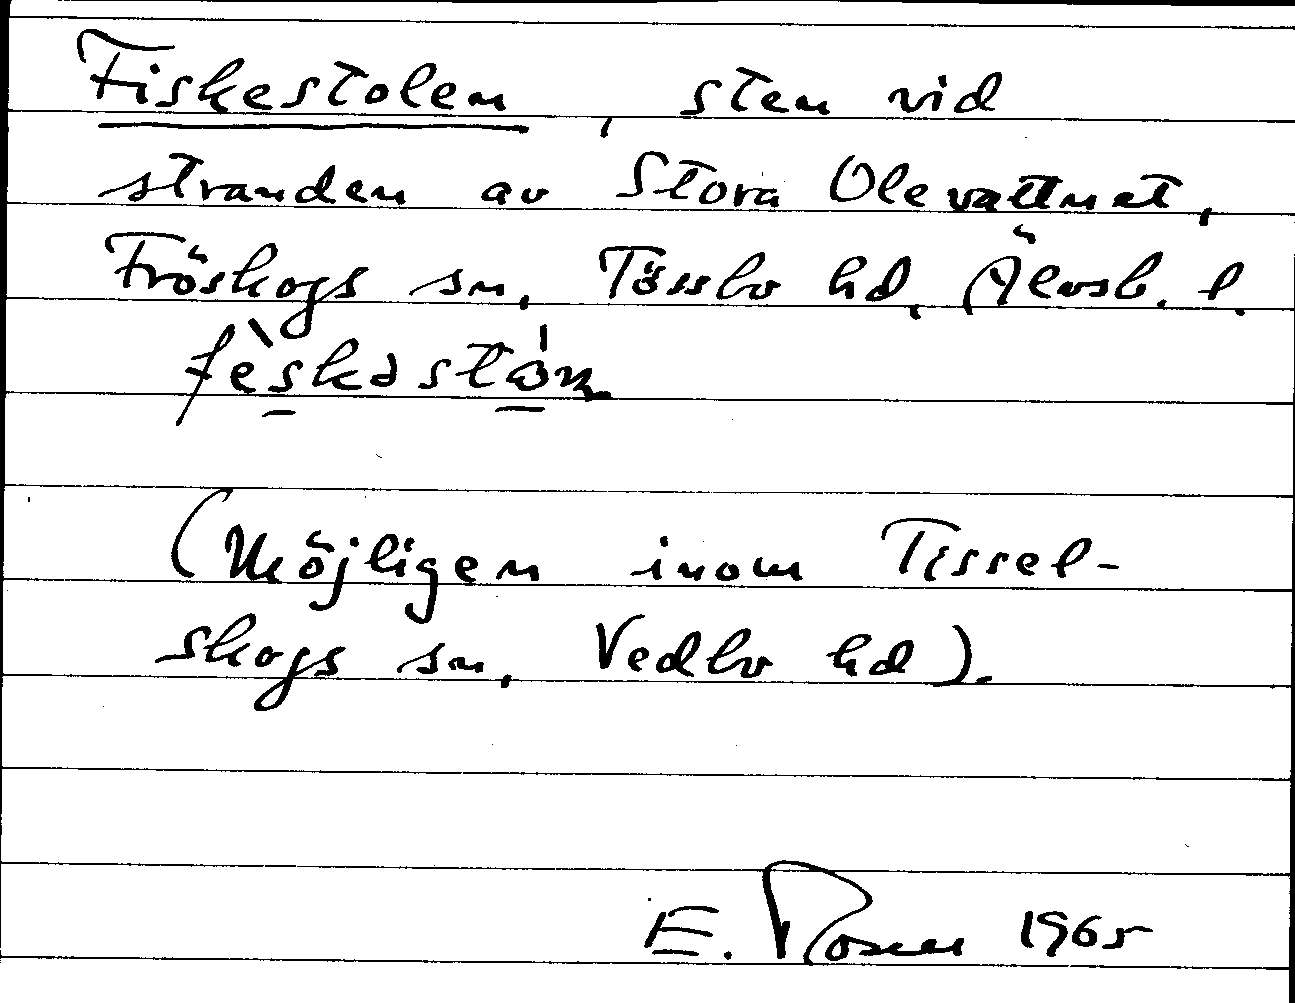 Fiskestolen, sten vid
stranden av Stora Olevattnet,
Fröskogs sn, Tössbo hd, Älvsb. l.
(Möjligen inom Tissel-
skogs sn, Vedbo hd).
E. Rosen 1965